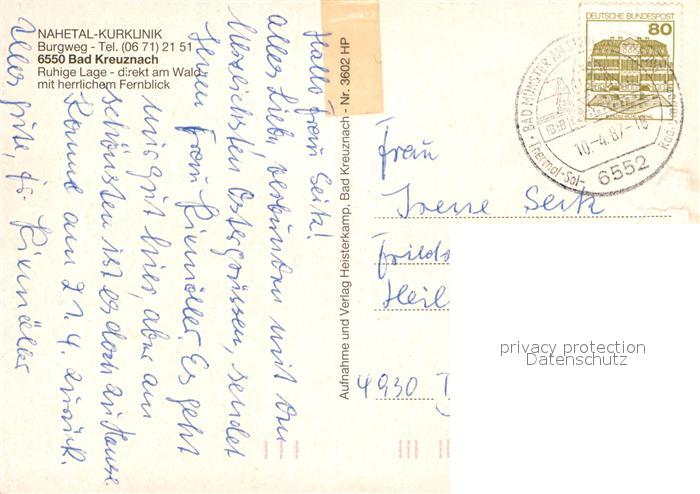 NAHETAL-KURKLINIK
Burgweg - Tel. (06 71) 21 51
6550 Bad Kreuznach
Ruhige Lage - direkt am Wald -
mit herrlichem Fernblick
Hallo Frau Seik!
alles Liebe verbunden mit den
herzlichsten Ostergrüssen, sendet
Ihnen Frau Rixmöller. Es geht
mir gut hier, aber am
schönsten ist es doch zu Hause
Komme am 21.4. zurück.
Alles gute, Fr. Rixmöller
Aufnahme und Verlag Heisterkamp, Bad Kreuznach - Nr. 3602 HP
DEUTSCHE BUNDESPOST
80
BAD MÜNSTER AM
10.-4.87.-16
Thermal-Sol-
6552
Frau
Irene Seik
Heil
4930
privacy protection
Datenschutz